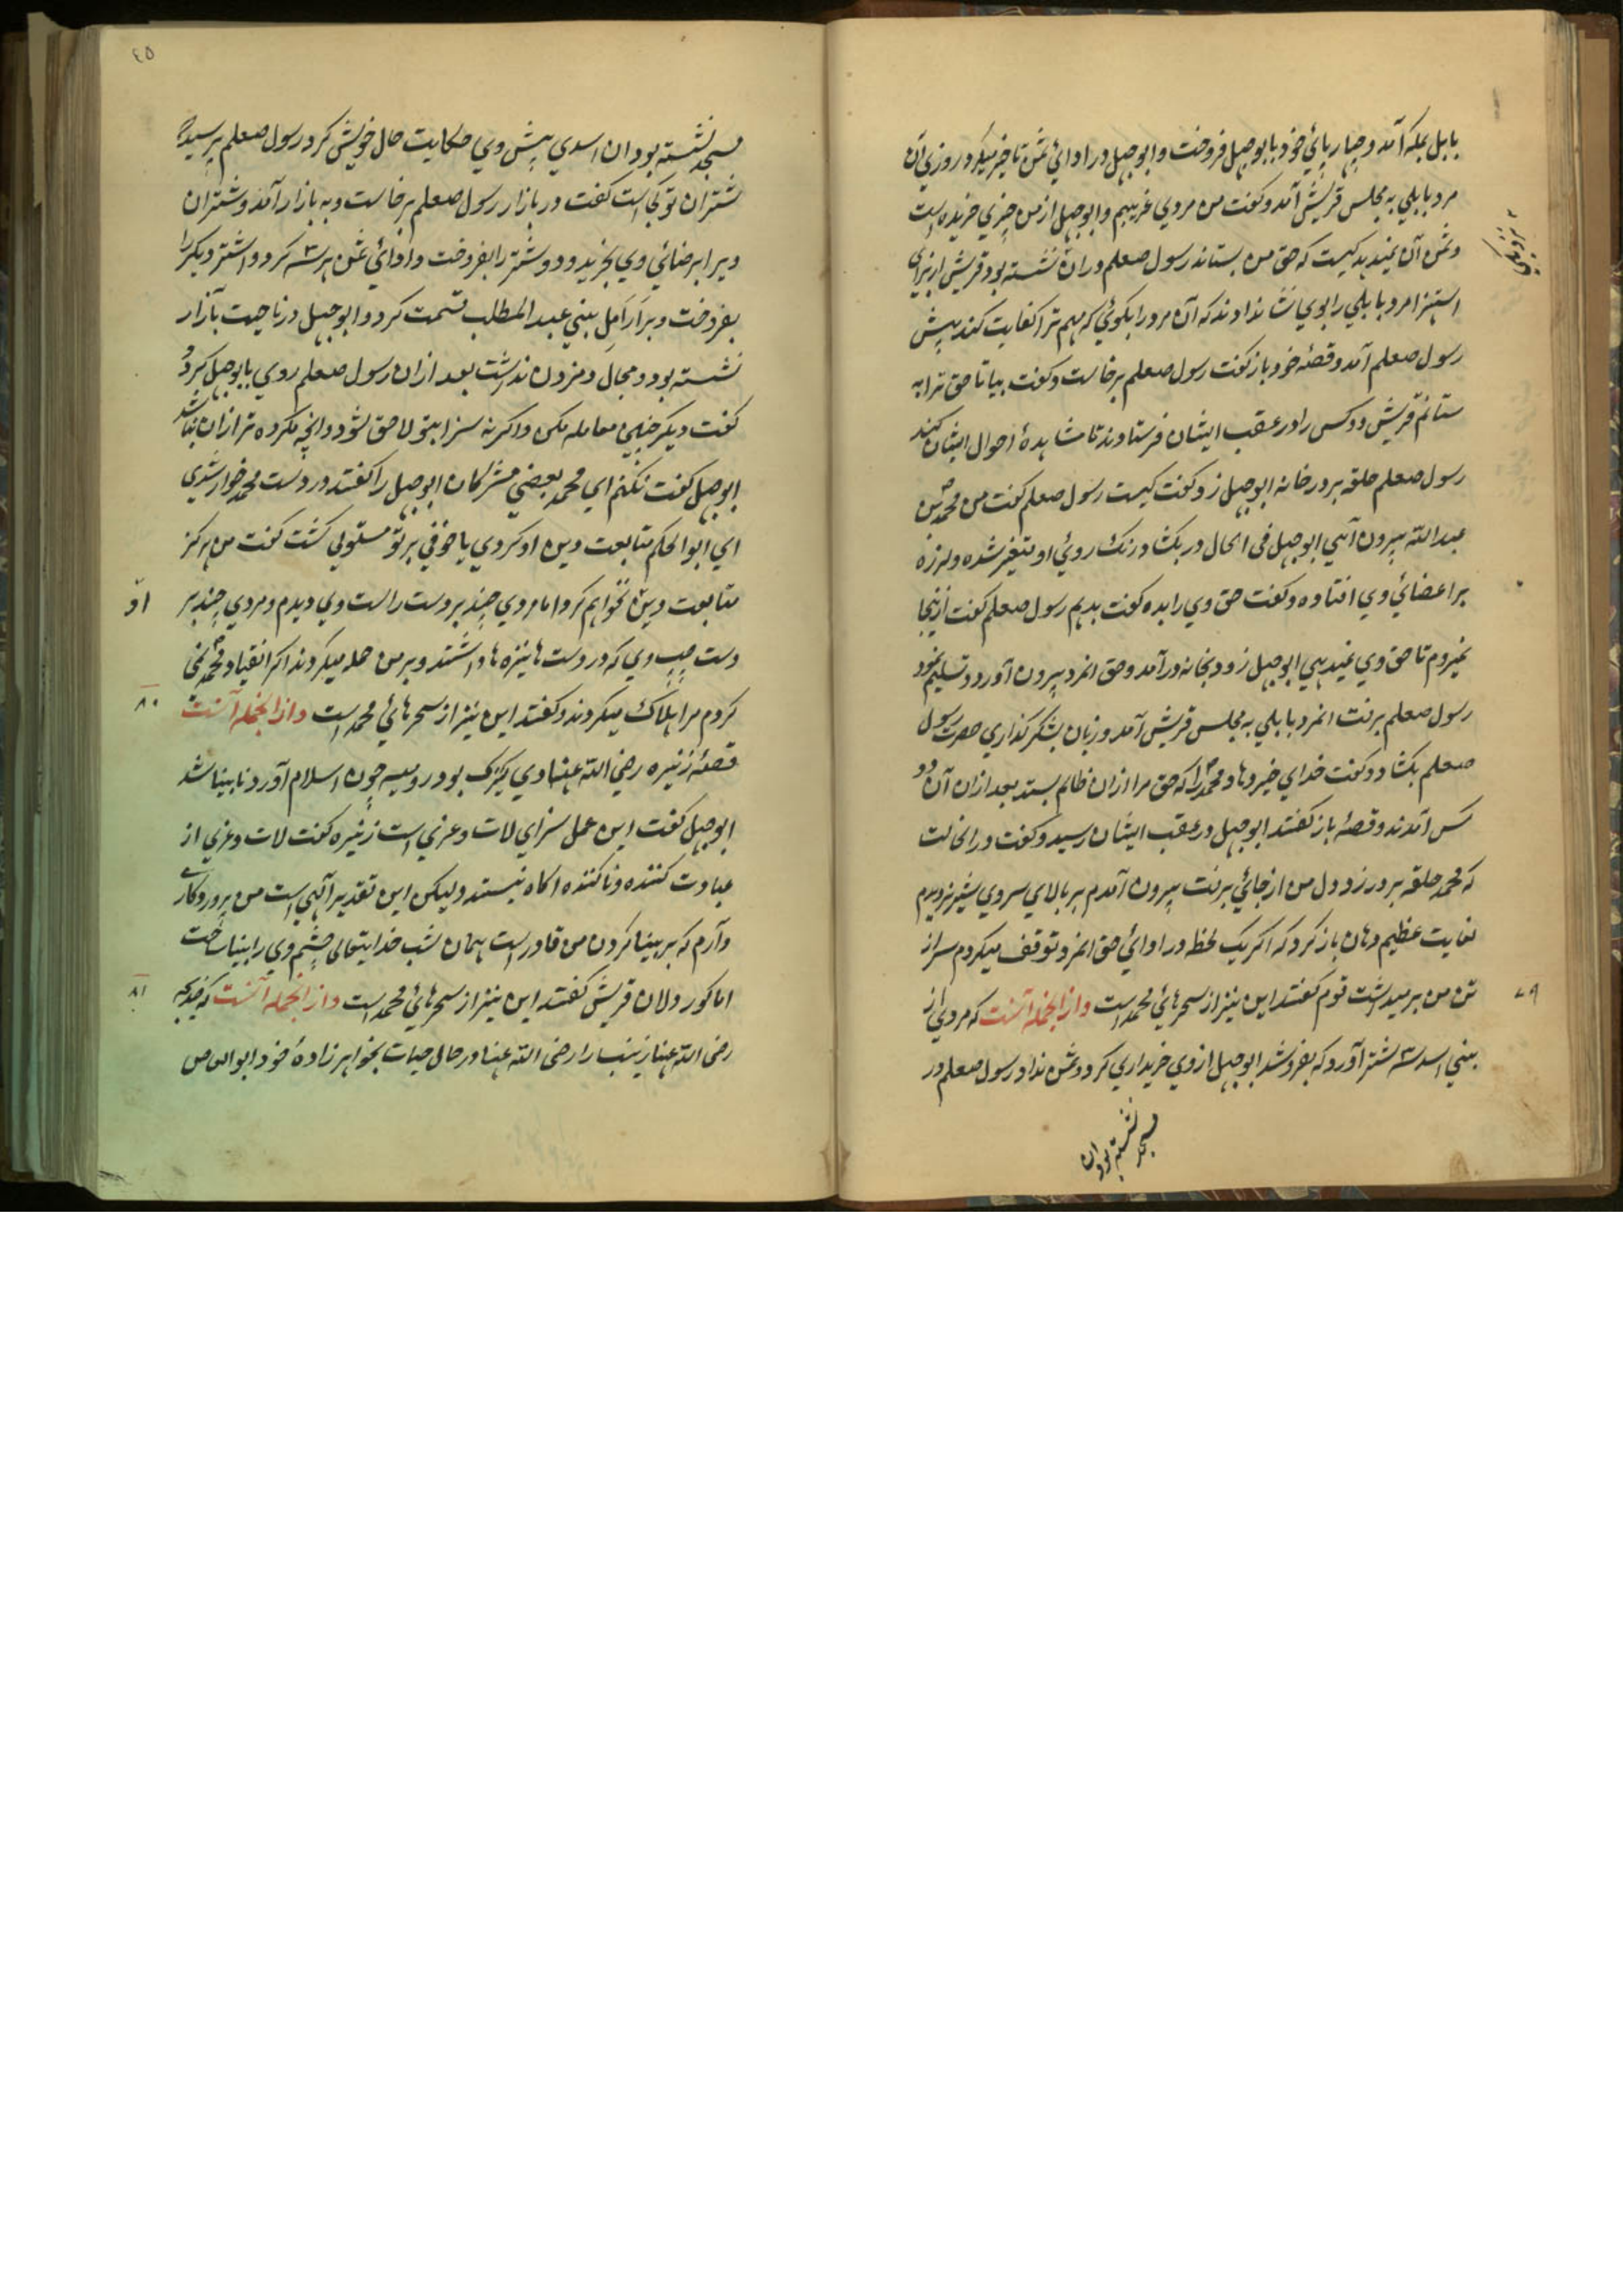 بابل بمکه آمد و چهارپائی خود بابوجهل فروخت و ابوجهل در ادائی ثمن تاخیر میکرد روزی آن
مرد بابلی به مجلس قریش آمد و گفت من مردی غریبم و ابوجهل از من چیزی خریده است
و ثمن آن نمیدهد کیست که حق من بستاند رسول صعلم دران نشسته بود قریش از برای
استهزا مرد بابلی را بوی نشان دادند که آن مرد را بگوئی که مهم ترا کفایت کند پیش
رسول صعلم آمد و قصهٔ خود باز گفت رسول صعلم برخاست و گفت بیا تا حق ترا به
ستانم قریش دو کس را در عقب ایشان فرستادند تا مشاهدهٔ احوال ایشان کنند
رسول صعلم حلقه بر در خانه ابوجهل زد گفت کیست رسول صعلم گفت من محمد بن
عبدالله بیرون آی ابوجهل فی الحال در بکشاد رنک روئی او متغیر شده و لرزه
بر اعضائی وی افتاده و گفت حق وی را بده گفت بدهم رسول صعلم گفت ازینجا
نمیروم تا حق وی نمیدهی ابوجهل زود بخانه درآمد و حق انمرد بیرون آورد و تسلیم نمود
رسول صعلم برفت انمرد بابلی به مجلس قریش آمد و زبان بشکر گذاری حضرت رسول
صعلم بکشاد و گفت خدای خیر دهاد محمد را که حق مرا ازان ظالم بستد بعد ازان آن دو
کس آمدند و قصهٔ باز گفتند ابوجهل در عقب ایشان رسید و گفت در انحالت
که محمد حلقه بر در زد دل من از جائی برفت بیرون آمدم بر بالای سر وی شیر نر دیدم
بغایت عظیم دهان باز کرد که اگر یک لحظه در ادائی حق انمرد توقف میکردم سر از
۷۹
تن من بر میداشت قوم گفتند این نیز از سحرهائی محمد است و از انجمله آنست که مردی از
بنی اسد سه شتر آورد که بفروشد ابوجهل از وی خریداری کرد و ثمن نداد رسول صعلم در
مسجد نشسته بود ان
٤٥
مسجد نشسته بود ان اسدی پیش وی حکایت حال خویش کرد رسول صعلم پرسید که
شتران تو کجاست گفت در بازار رسول صعلم برخاست و به بازار آمد و شتران
ویرا برضائی وی بخرید و دو شتر را بفروخت و ادائی ثمن هر سه کرد و اشتر دیگر را
بفروخت و بر ارامل بنی عبد المطلب قسمت کرد و ابوجهل در ناحیت بازار
نشسته بود و مجال دم زدن نداشت بعد ازان رسول صعلم روی بابوجهل کرد و
گفت دیگر چنین معامله مکن و اگر نه سزا بتو لاحق شود و انچه مکرده تر ازان نباشد
ابوجهل گفت نکنم ای محمد بعضی مشرکان ابوجهل را گفتند در دست محمد خوار شدی
ای ابوالحکم متابعت دین او کردی یا خوفی بر تو مستولی گشت گفت من هرگز
متابعت دین نخواهم کرد اما مردی چند بر دست راست وی دیدم و مردی چند بر
او
دست چپ وی که در دست ها نیزه ها داشتند و بر من حمله میکردند اگر انقیاد محمد نمی
کردم مرا هلاک میکردند و گفتند این نیز از سحرهائی محمد است و از انجمله آنست
۸۰
قصهٔ زنیره رضی الله عنها وی کنیزک بود رومیه چون اسلام آورد نابینا شد
ابوجهل گفت این عمل سزای لات و عزی است زنیره گفت لات و عزی از
عبادت کننده و ناکننده اگاه نیستند ولیکن این تقدیر آلهی است من پروردگاری
دارم که بر بینا کردن من قادر است همان شب خدایتعالی چشم وی را بینا ساخت
اما کور دلان قریش گفتند این نیز از سحرهائی محمد است و از انجمله آنست که خدیجه
۸۱
رضی الله عنها زینب را رضی الله عنها در حال حیات بخواهرزادهٔ خود ابوالعاص